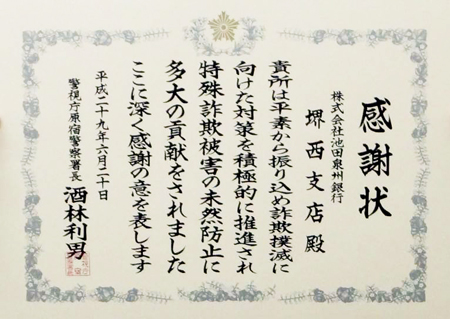 感謝状
株式会社池田泉州銀行
堺西支店殿
貴所は平素から振り込め詐欺撲滅に
向けた対策を積極的に推進され
特殊詐欺被害の未然防止に
多大の貢献をされました
ここに深く感謝の意を表します
平成二十九年六月二十日
警視庁原宿警察署長
酒林利男